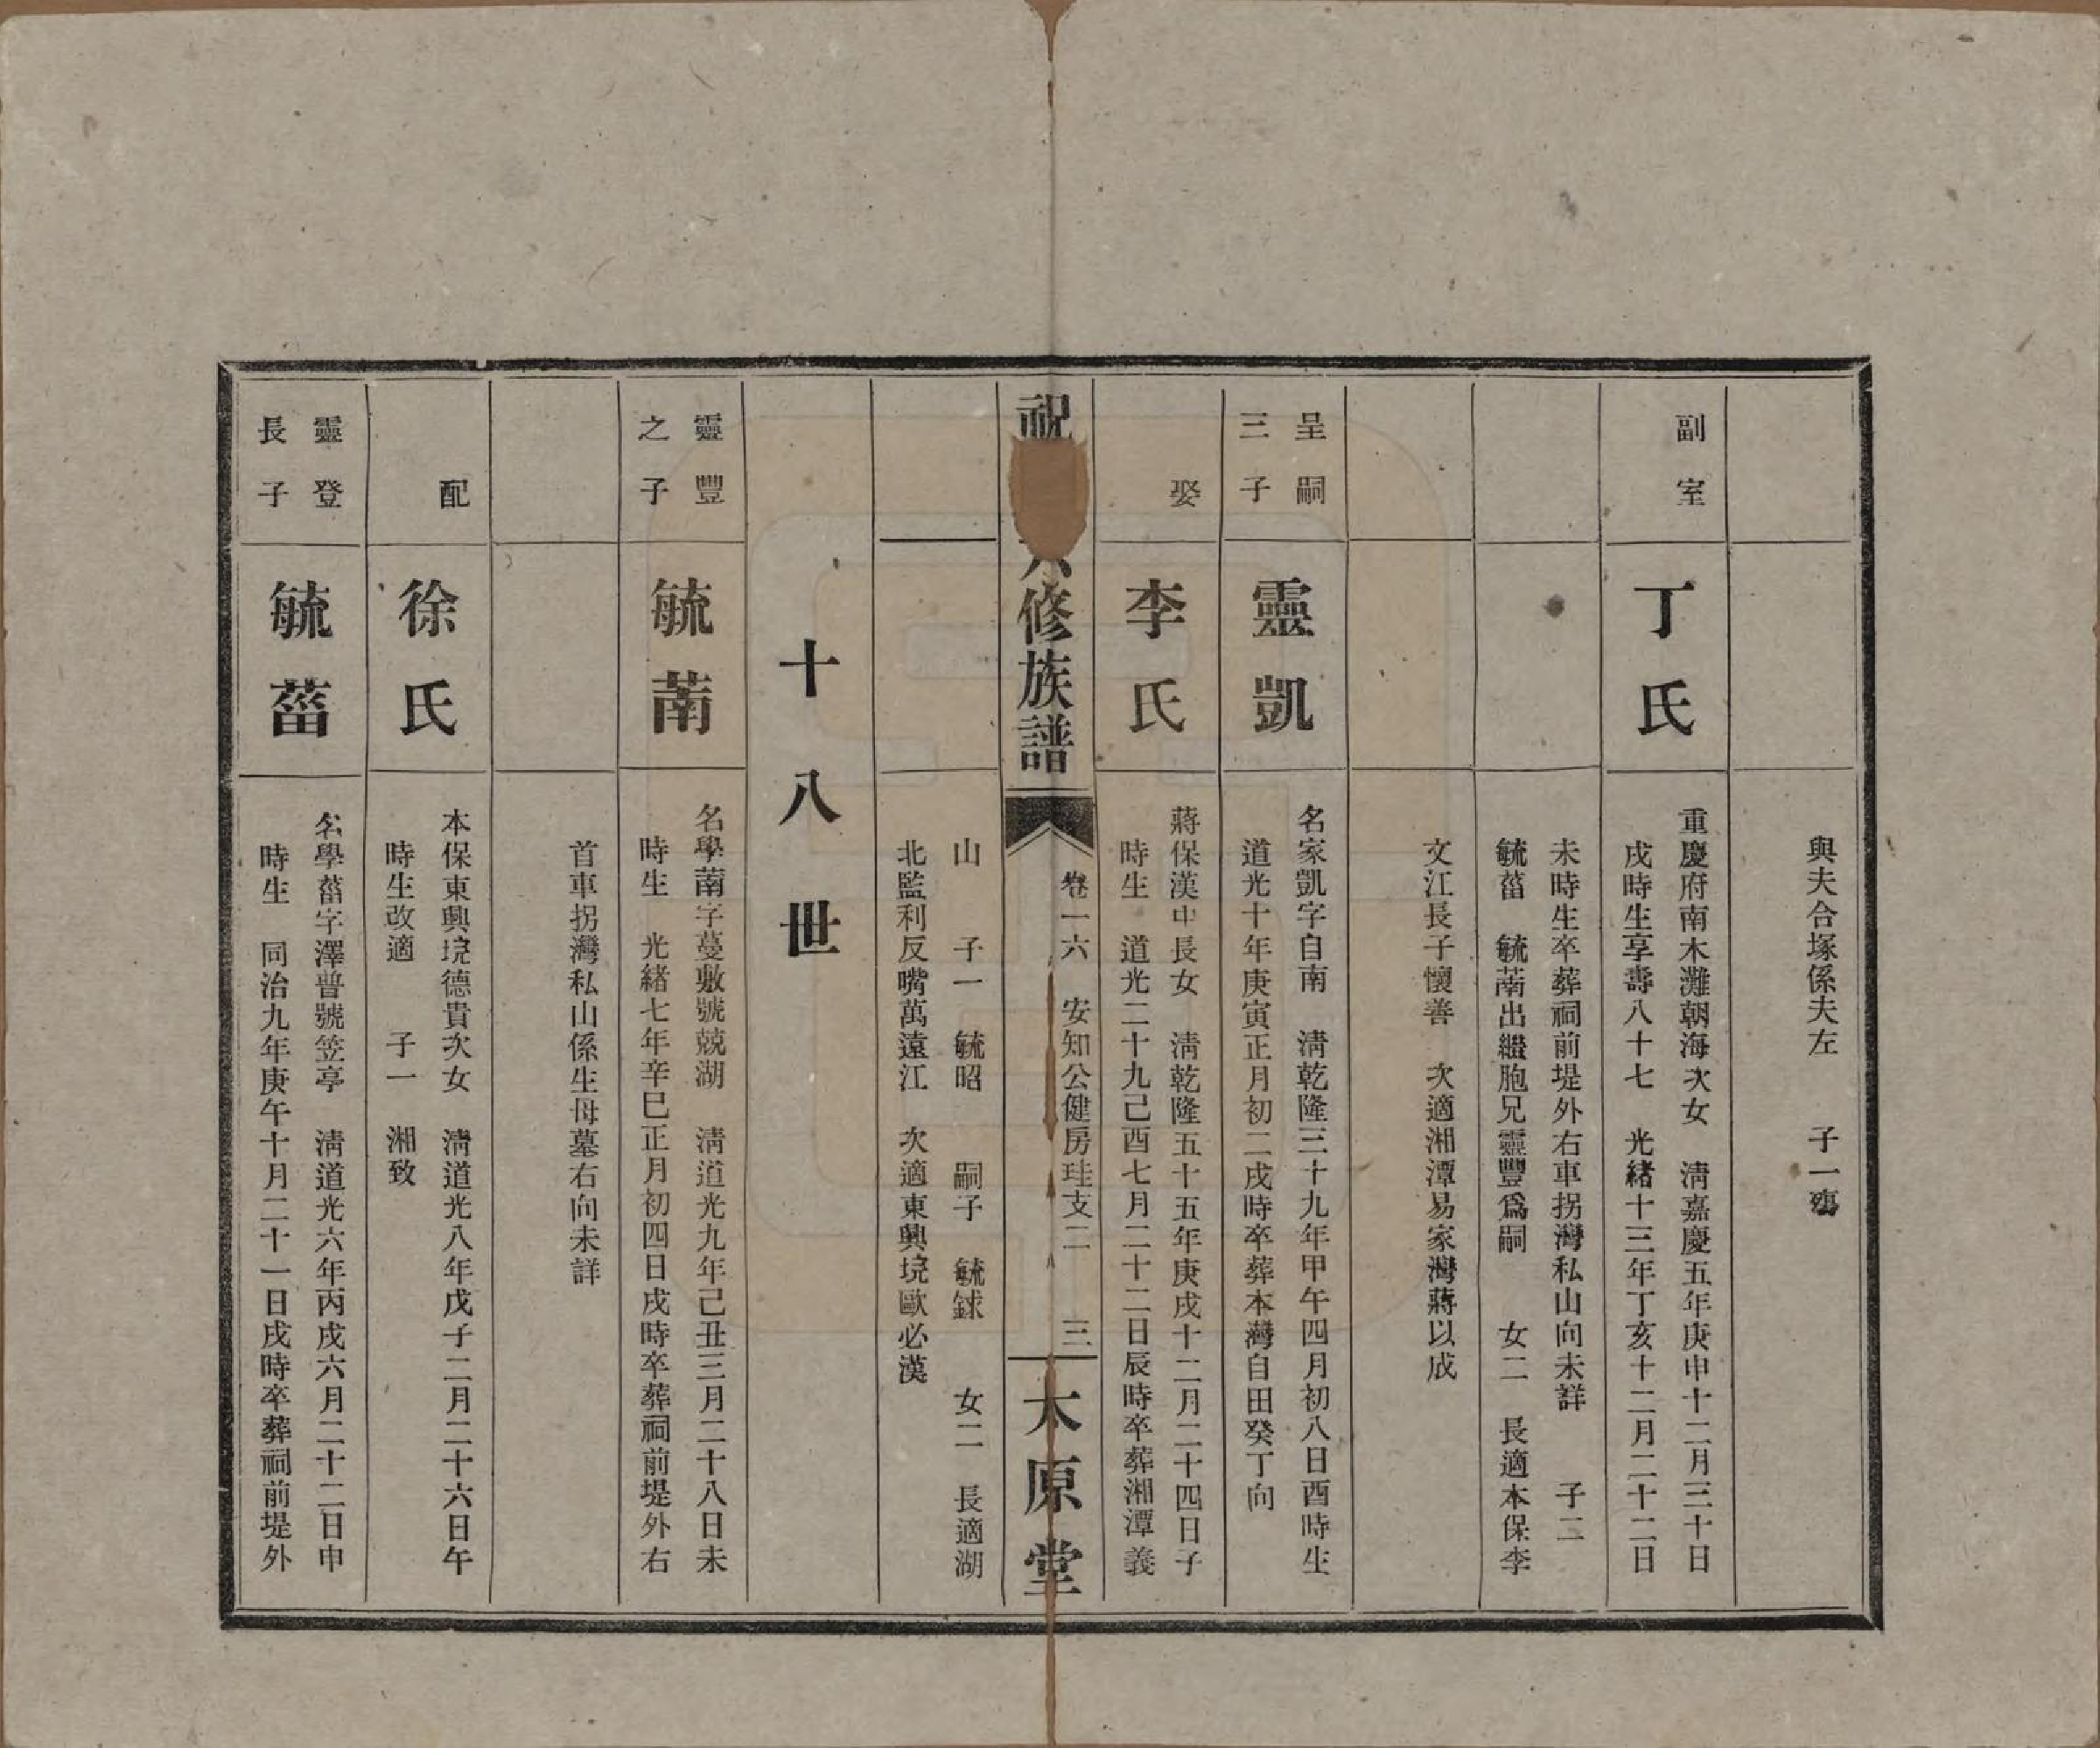 與夫合塚係夫左　子一殤
副室
丁氏
重慶府南木灘朝海次女　淸嘉慶五年庚申十二月三十日
戌時生享壽八十七　光緒十三年丁亥十二月二十二日
未時生卒葬祠前堤外右車拐灣私山向未詳　子二
毓菑　毓萳出繼胞兄靈豐爲嗣　女二　長適本保李
文江長子懷善　次適湘潭易家灣蔣以成
呈嗣
三子
靈凱
名家凱字自南　淸乾隆三十九年甲午四月初八日酉時生
道光十年庚寅正月初二戌時卒葬本灣自田癸丁向
娶
李氏
蔣保漢中長女　淸乾隆五十五年庚戌十二月二十四日子
時生　道光二十九己酉七月二十二日辰時卒葬湘潭義
祝
六修族譜
卷一六　安知公健房珪支二　三
太原堂
山　子一　毓昭　嗣子　毓銶　女二　長適湖
北監利反嘴萬遠江　次適東興垸歐必漢
十八世
靈豐
之子
毓萳
名學萳字蔓敷號兢湖　淸道光九年己丑三月二十八日未
時生　光緒七年辛巳正月初四日戌時卒葬祠前堤外右
首車拐灣私山係生母墓右向未詳
配
徐氏
本保東興垸德貴次女　淸道光八年戊子二月二十六日午
時生改適　子一　湘致
靈登
長子
毓菑
名學菑字澤普號笠亭　淸道光六年丙戌六月二十二日申
時生　同治九年庚午十月二十一日戌時卒葬祠前堤外